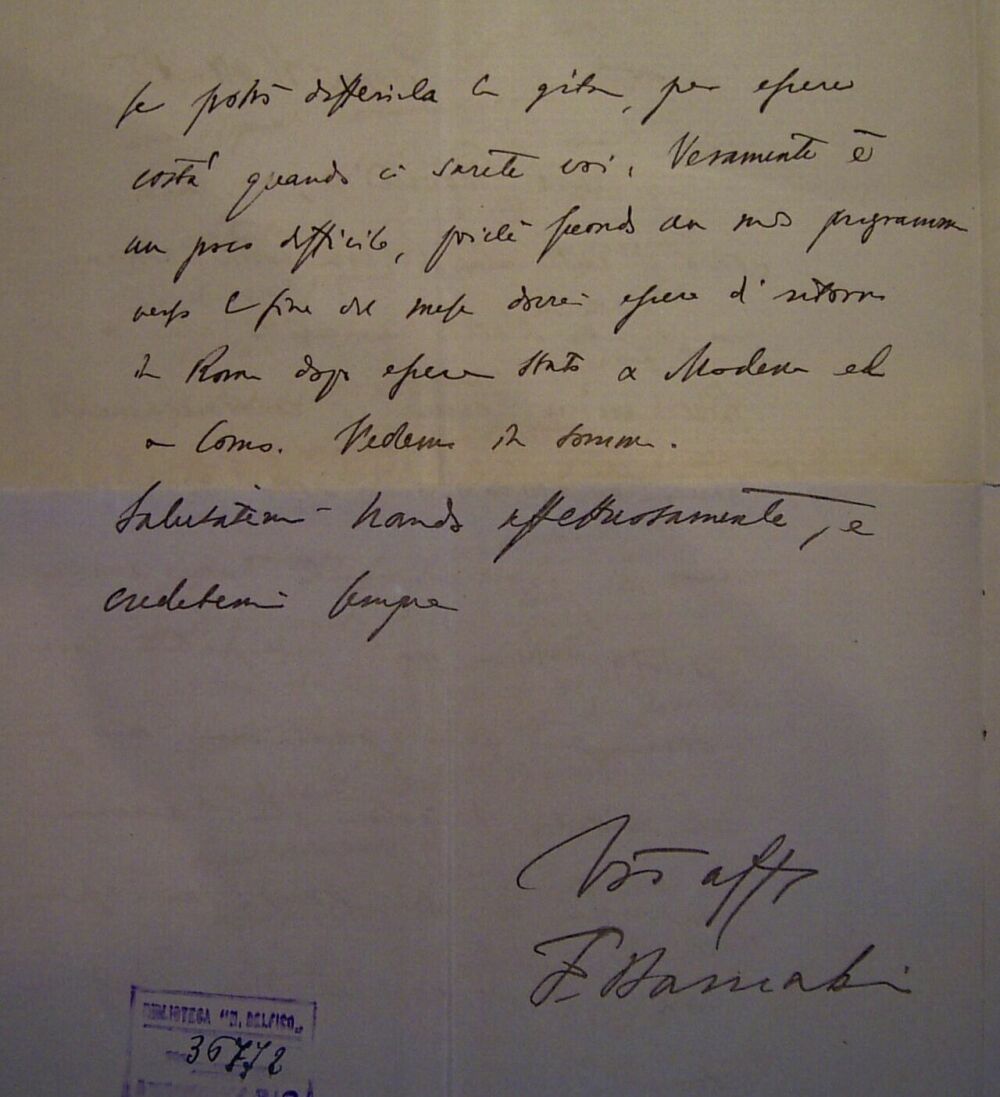 se potrò differirla la gita, per essere
costà quando ci sarete voi. Veramente è
un poco difficile, poichè secondo un mio programma
verso la fine del mese dovrei essere di ritorno
in Roma dopo essere stato a Modena ed
a Como. Vedremo in somma.
Salutatemi Nando affettuosamente, e
credetemi sempre
Vostro aff
F. Barnabei
BIBLIOTECA "M. DELFICO"
36772